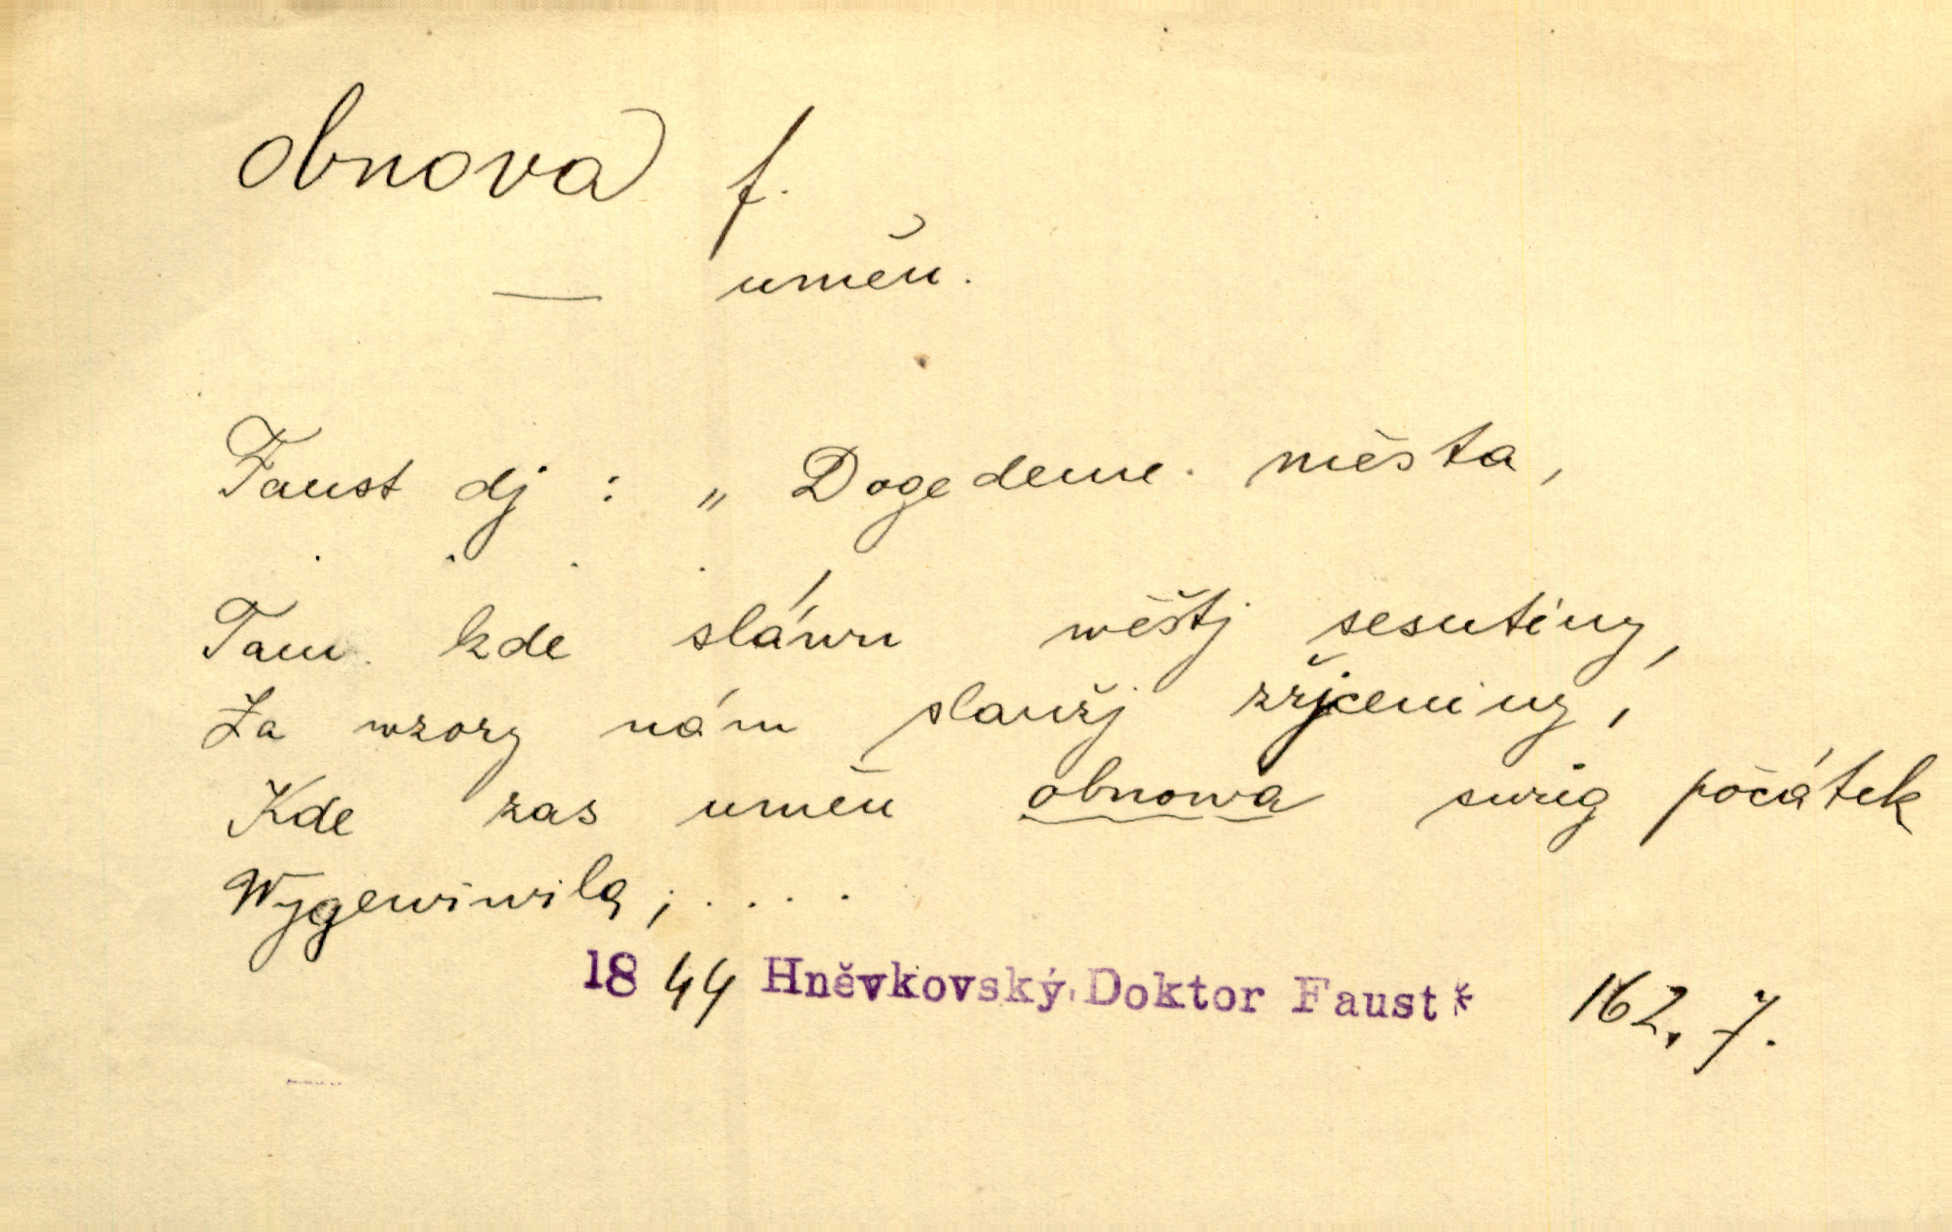 obnova f.
— uměn.
Faust dj : „ Dogedeme města,
. . . .
Tam kde sláwu wěštj sesutiny,
Za wzory nám slaužj zřjceniny,
Kde zas uměn obnowa swůg počátek
Wygewiwila; . . . .
18 44 Hněvkovský, Doktor Faust* 162, 7.